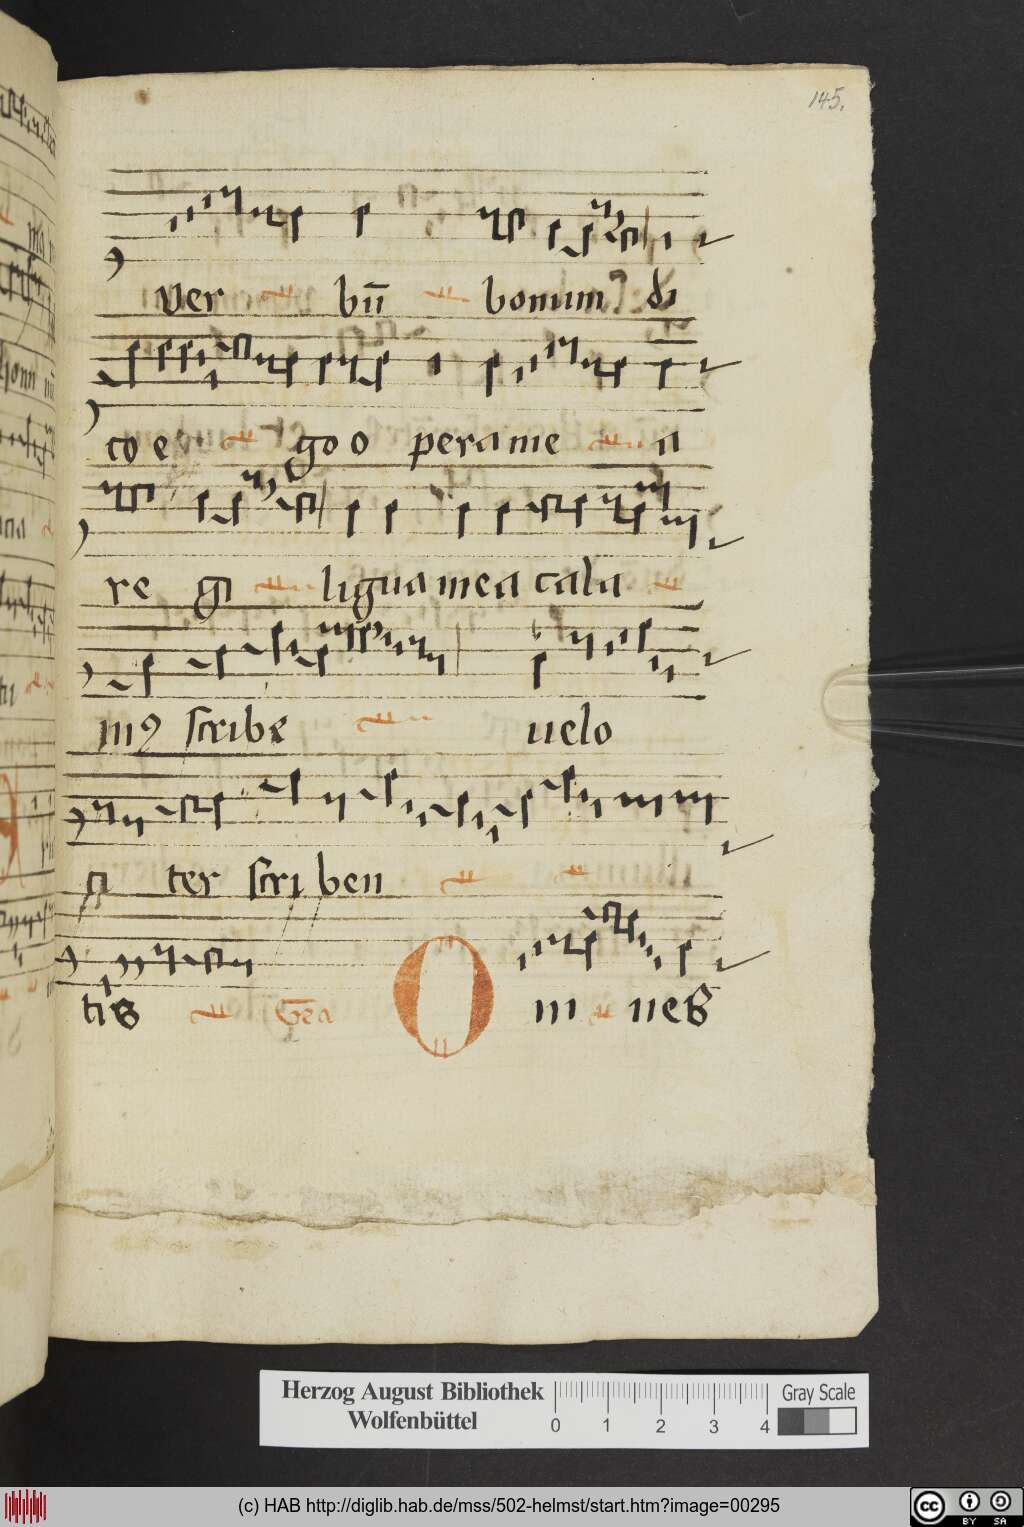 145.
Ver bū bonum di
co e go o pera me a
re gi ligua mea cala
mꝯ scribe uelo
ci ter scri ben
tis Gra O m nes
Herzog August Bibliothek
Wolfenbüttel
0 1 2 3 4
Gray Scale
(c) HAB http://diglib.hab.de/mss/502-helmst/start.htm?image=00295
cc BY SA